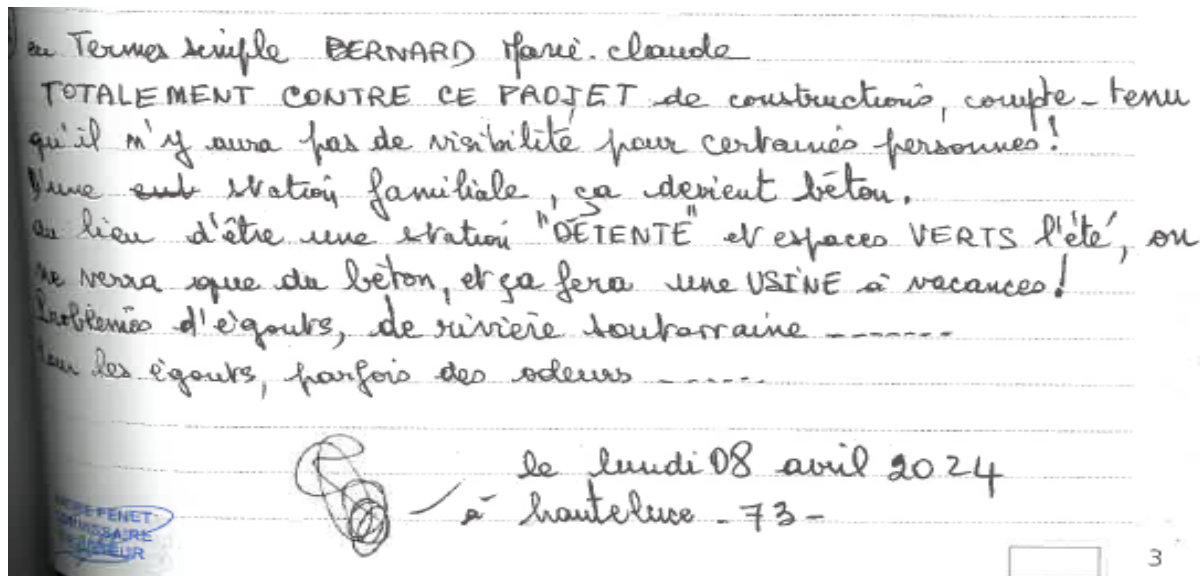 en Termes simple BERNARD Marie-Claude
TOTALEMENT CONTRE CE PROJET de constructions, compte-tenu
qu'il n'y aura pas de visibilité pour certaines personnes!
D'une station familiale, ça devient béton.
au lieu d'être une station "DÉTENTE" et espaces VERTS l'été, on
ne verra que du béton, et ça fera une USINE à vacances!
Problèmes d'égouts, de rivière souterraine -------
Pour les égouts, parfois des odeurs ------
le lundi 08 avril 2024
à hauteluce - 73 -
FENET
COMMISSAIRE
3